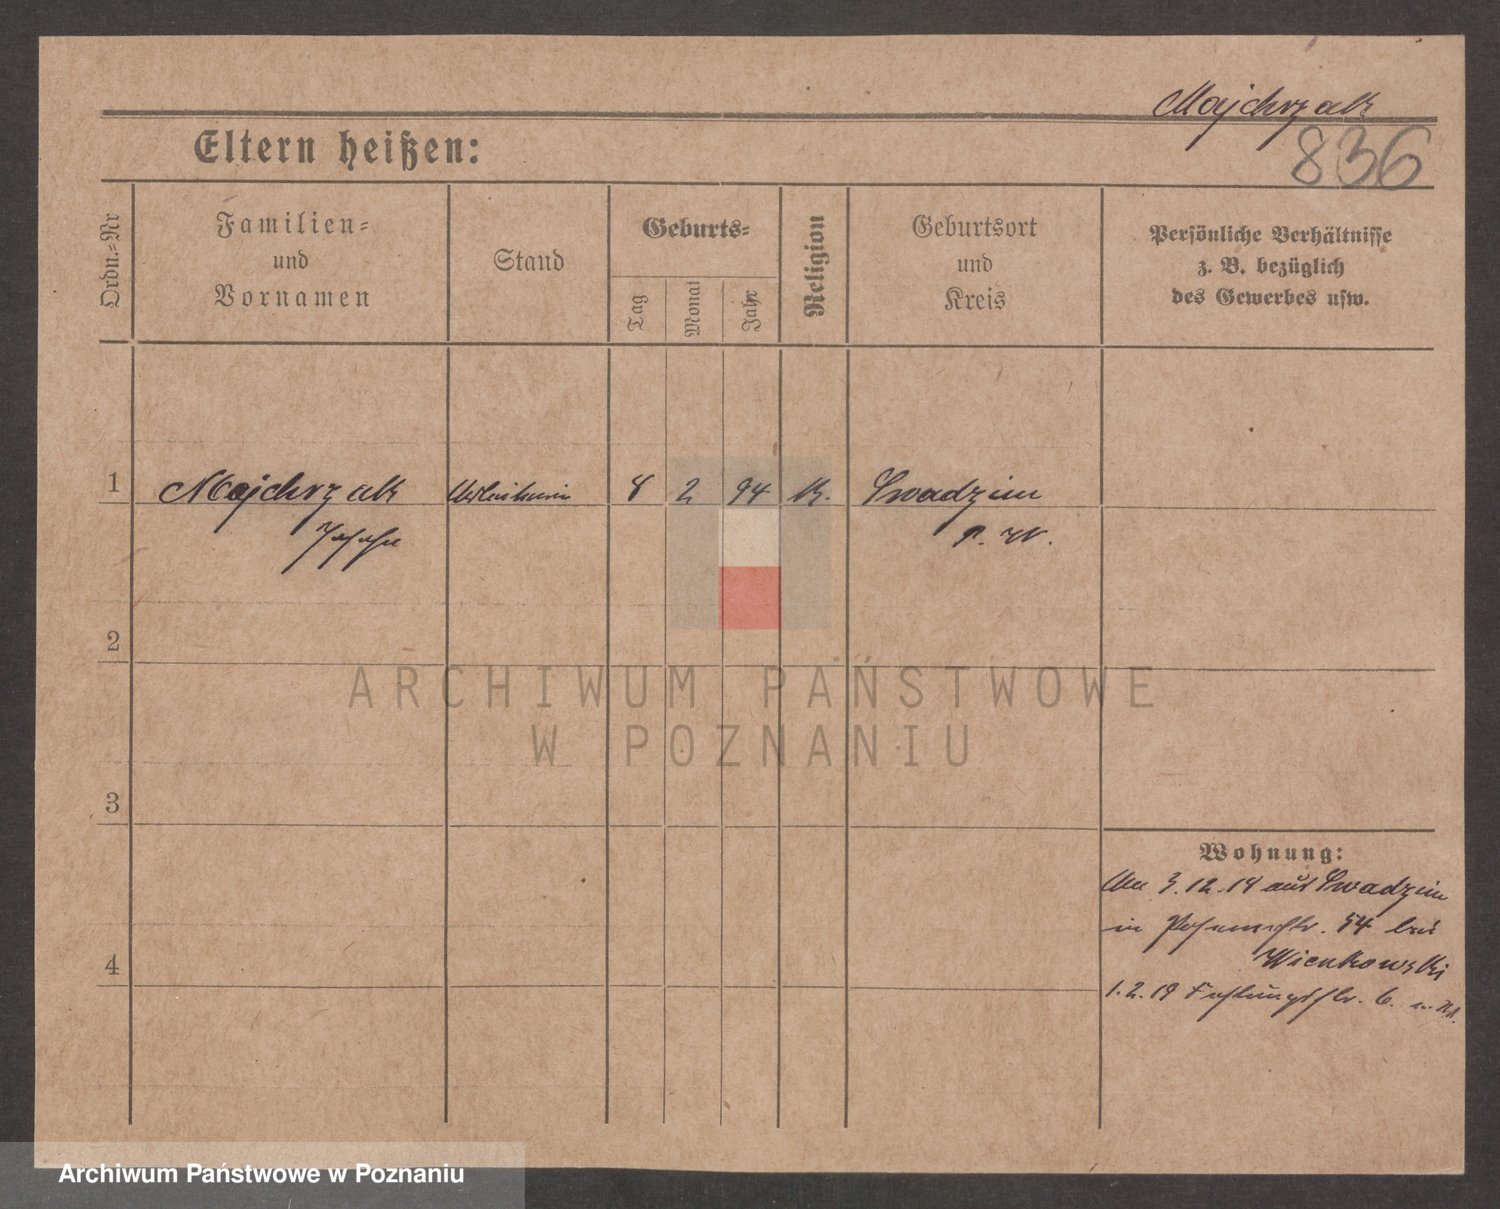 Majchrzak
836
Eltern heißen:
Ordn.-Nr
Familien-
und
Vornamen
Stand
Geburts-
Tag
Monat
Jahr
Religion
Geburtsort
und
Kreis
Persönliche Verhältnisse
z. B. bezüglich
des Gewerbes usw.
1 Majchrzak Arbeiterin 8 2 94 K. Swadzim
P. W.
2
ARCHIWUM PAŃSTWOWE
W POZNANIU
3
Wohnung:
3.12.14 aus Swadzim
in Posenerstr. 54 bei
Wienkowski
4
1.2.19 6.
Archiwum Państwowe w Poznaniu